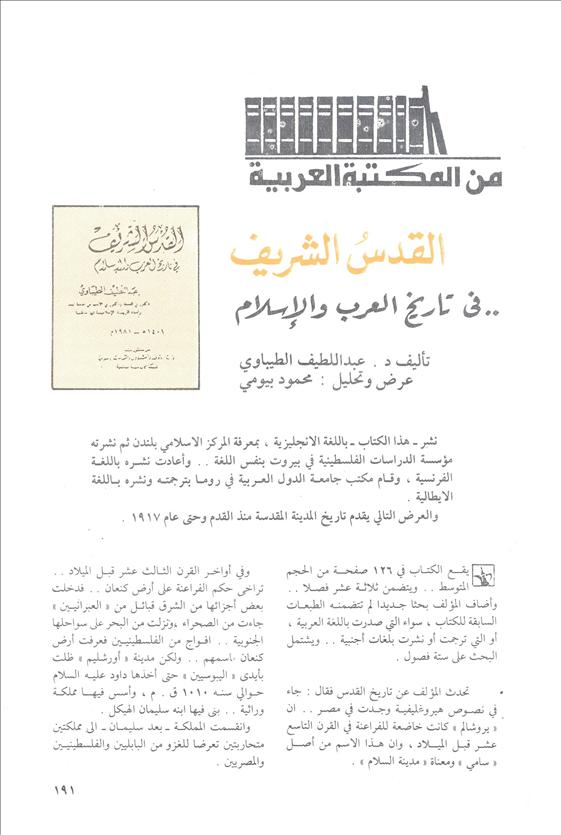 من المكتبة العربية
القدسُ الشريف
.. في تاريخ العرب والإسلام
تأليف د . عبداللطيف الطيباوي
عرض وتحليل : محمود بيومي
القدس الشريف
في تاريخ العرب والإسلام
عبد اللطيف الطيباوي
١٤٠١ هـ - ١٩٨١ م
نشر ـ هذا الكتاب ـ باللغة الانجليزية ، بمعرفة المركز الاسلامي بلندن ثم نشرته
مؤسسة الدراسات الفلسطينية في بيروت بنفس اللغة . . وأعادت نشره باللغة
الفرنسية ، وقام مكتب جامعة الدول العربية في روما بترجمته ونشره باللغة
الايطالية .
والعرض التالي يقدم تاريخ المدينة المقدسة منذ القدم وحتى عام ١٩١٧ .
يقع الكتاب في ١٢٦ صفحة من الحجم
المتوسط . . ويتضمن ثلاثة عشر فصلا . .
وأضاف المؤلف بحثا جديدا لم تتضمنه الطبعات
السابقة للكتاب ، سواء التي صدرت باللغة العربية ،
أو التي ترجمت أو نشرت بلغات أجنبية . . ويشتمل
البحث على ستة فصول .
تحدث المؤلف عن تاريخ القدس فقال : جاء
في نصوص هيروغليفية وجدت في مصر . . ان
« يروشالم » كانت خاضعة للفراعنة في القرن التاسع
عشر قبل الميلاد ، وان هذا الاسم من أصل
« سامي » ومعناة « مدينة السلام » .
وفي أواخر القرن الثالث عشر قبل الميلاد . .
تراخى حكم الفراعنة على أرض كنعان . . فدخلت
بعض أجزائها من الشرق قبائل من « العبرانيين »
جاءت من الصحراء ،وتزلت من البحر على سواحلها
الجنوبية . . افواج من الفلسطينيين فعرفت أرض
كنعان باسمهم . . ولكن مدينة « أورشليم » ظلت
بأيدى « اليبوسيين » حتى أخذها داود عليه السلام
حوالي سنه ١٠١٠ ق . م ، وأسس فيها مملكة
وراثية . . بنى فيها ابنه سليمان الهيكل .
وانقسمت المملكة ـ بعد سليمان ـ الى مملكتين
متحاربتين تعرضا للغزو من البابليين والفلسطينيين
والمصريين .
١٩١